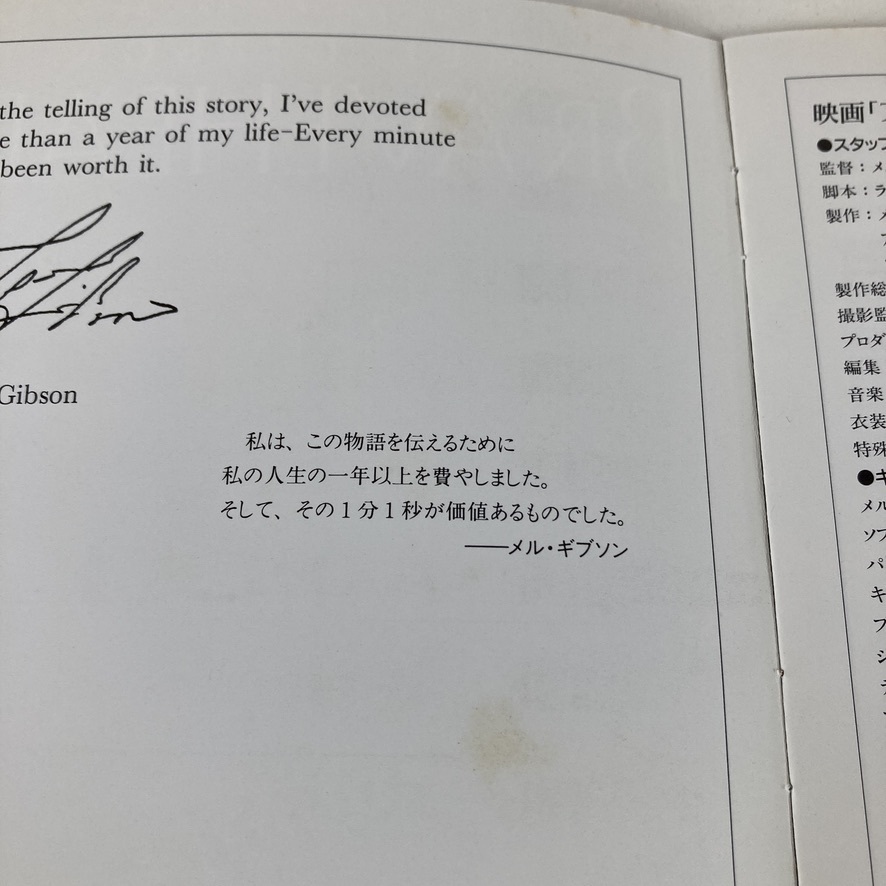 the telling of this story, I've devoted
than a year of my life–Every minute
been worth it.
Gibson
私は、この物語を伝えるために
私の人生の一年以上を費やしました。
そして、その1分1秒が価値あるものでした。
──メル・ギブソン
映画「
●スタッフ
監督：メ
脚本：ラ
製作：メ
製作総
撮影監
プロダ
編集
音楽
衣装
特殊
●キ
メル
ソフ
パ
キ
フ
シ